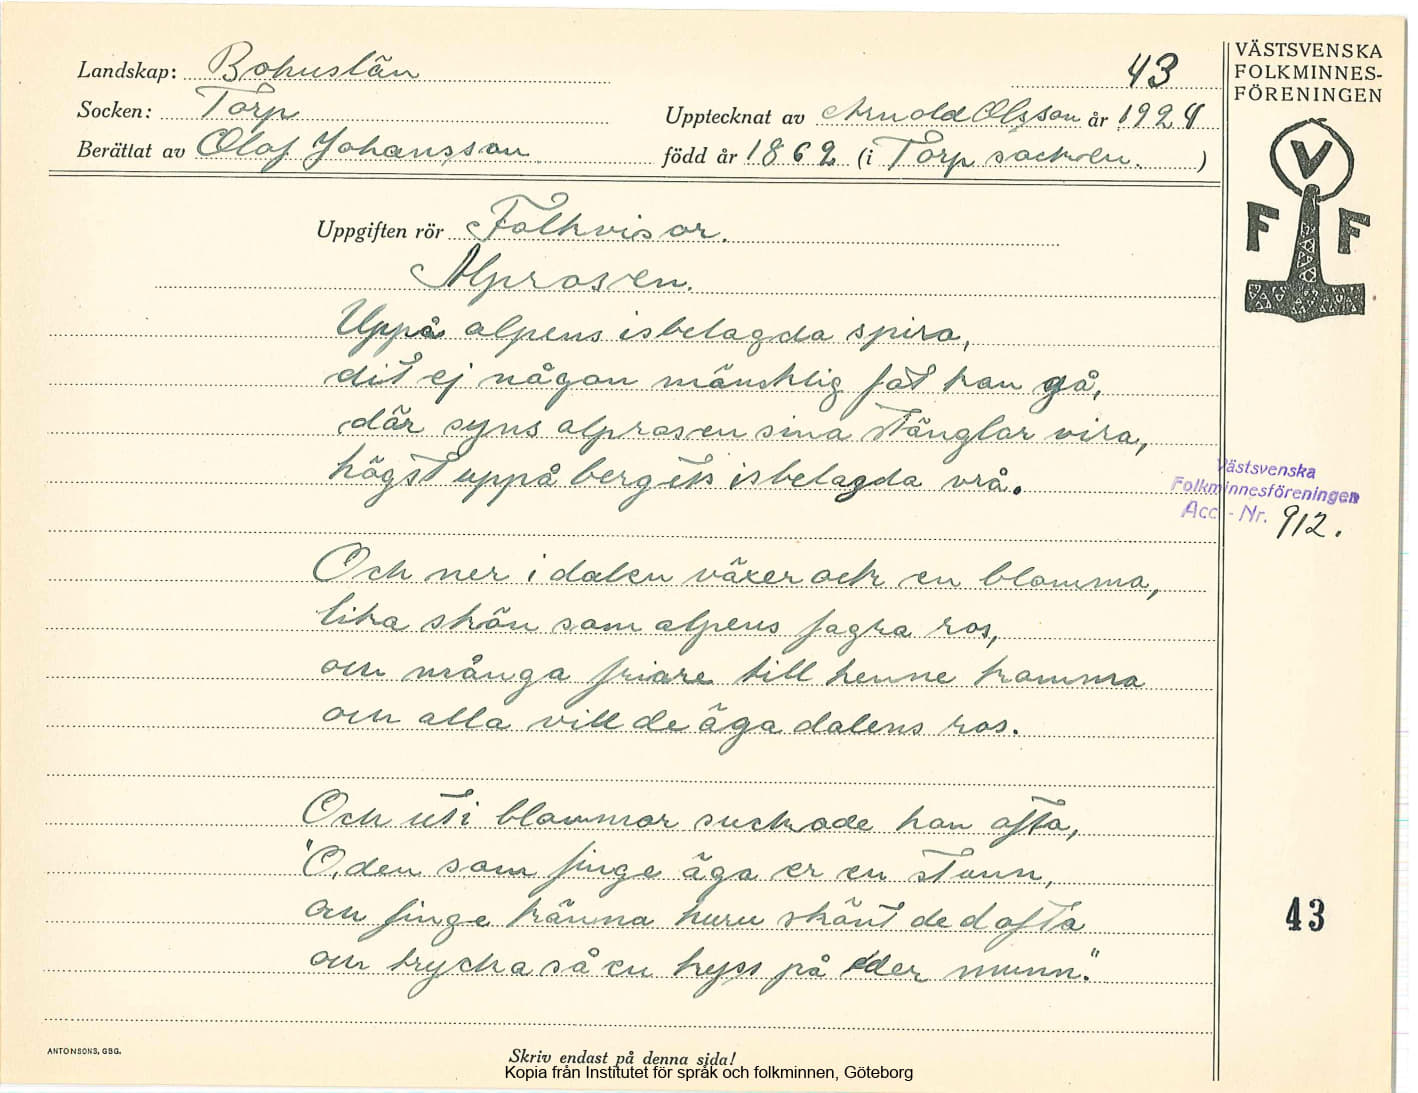 Landskap: Bohuslän
43
VÄSTSVENSKA
FOLKMINNES-
FÖRENINGEN
Socken: Torp
Upptecknat av Arnold Olsson år 1924
Berättat av Olof Johansson
född år 1862 (i Torp socken. )
V
F F
Uppgiften rör Folkvisor.
Alprosen.
Uppå alpens isbelagda spira,
dit ej någon mänsklig fot kan gå,
där syns alprosen sina stänglar vira,
högst uppå bergets isbelagda vrå.
Västsvenska
Folkminnesföreningen
Acc. - Nr. 912.
Och ner i dalen växer ock en blomma,
lika skön som alpens fagra ros,
och många friare till henne komma
och alla vill de äga dalens ros.
Och uti blommor suckade han ofta,
"O, den som finge äga er en stunn,
och finge känna huru skönt de dofta
och trycka så en kyss på eder munn."
43
ANTONSONS, GBG.
Skriv endast på denna sida!
Kopia från Institutet för språk och folkminnen, Göteborg